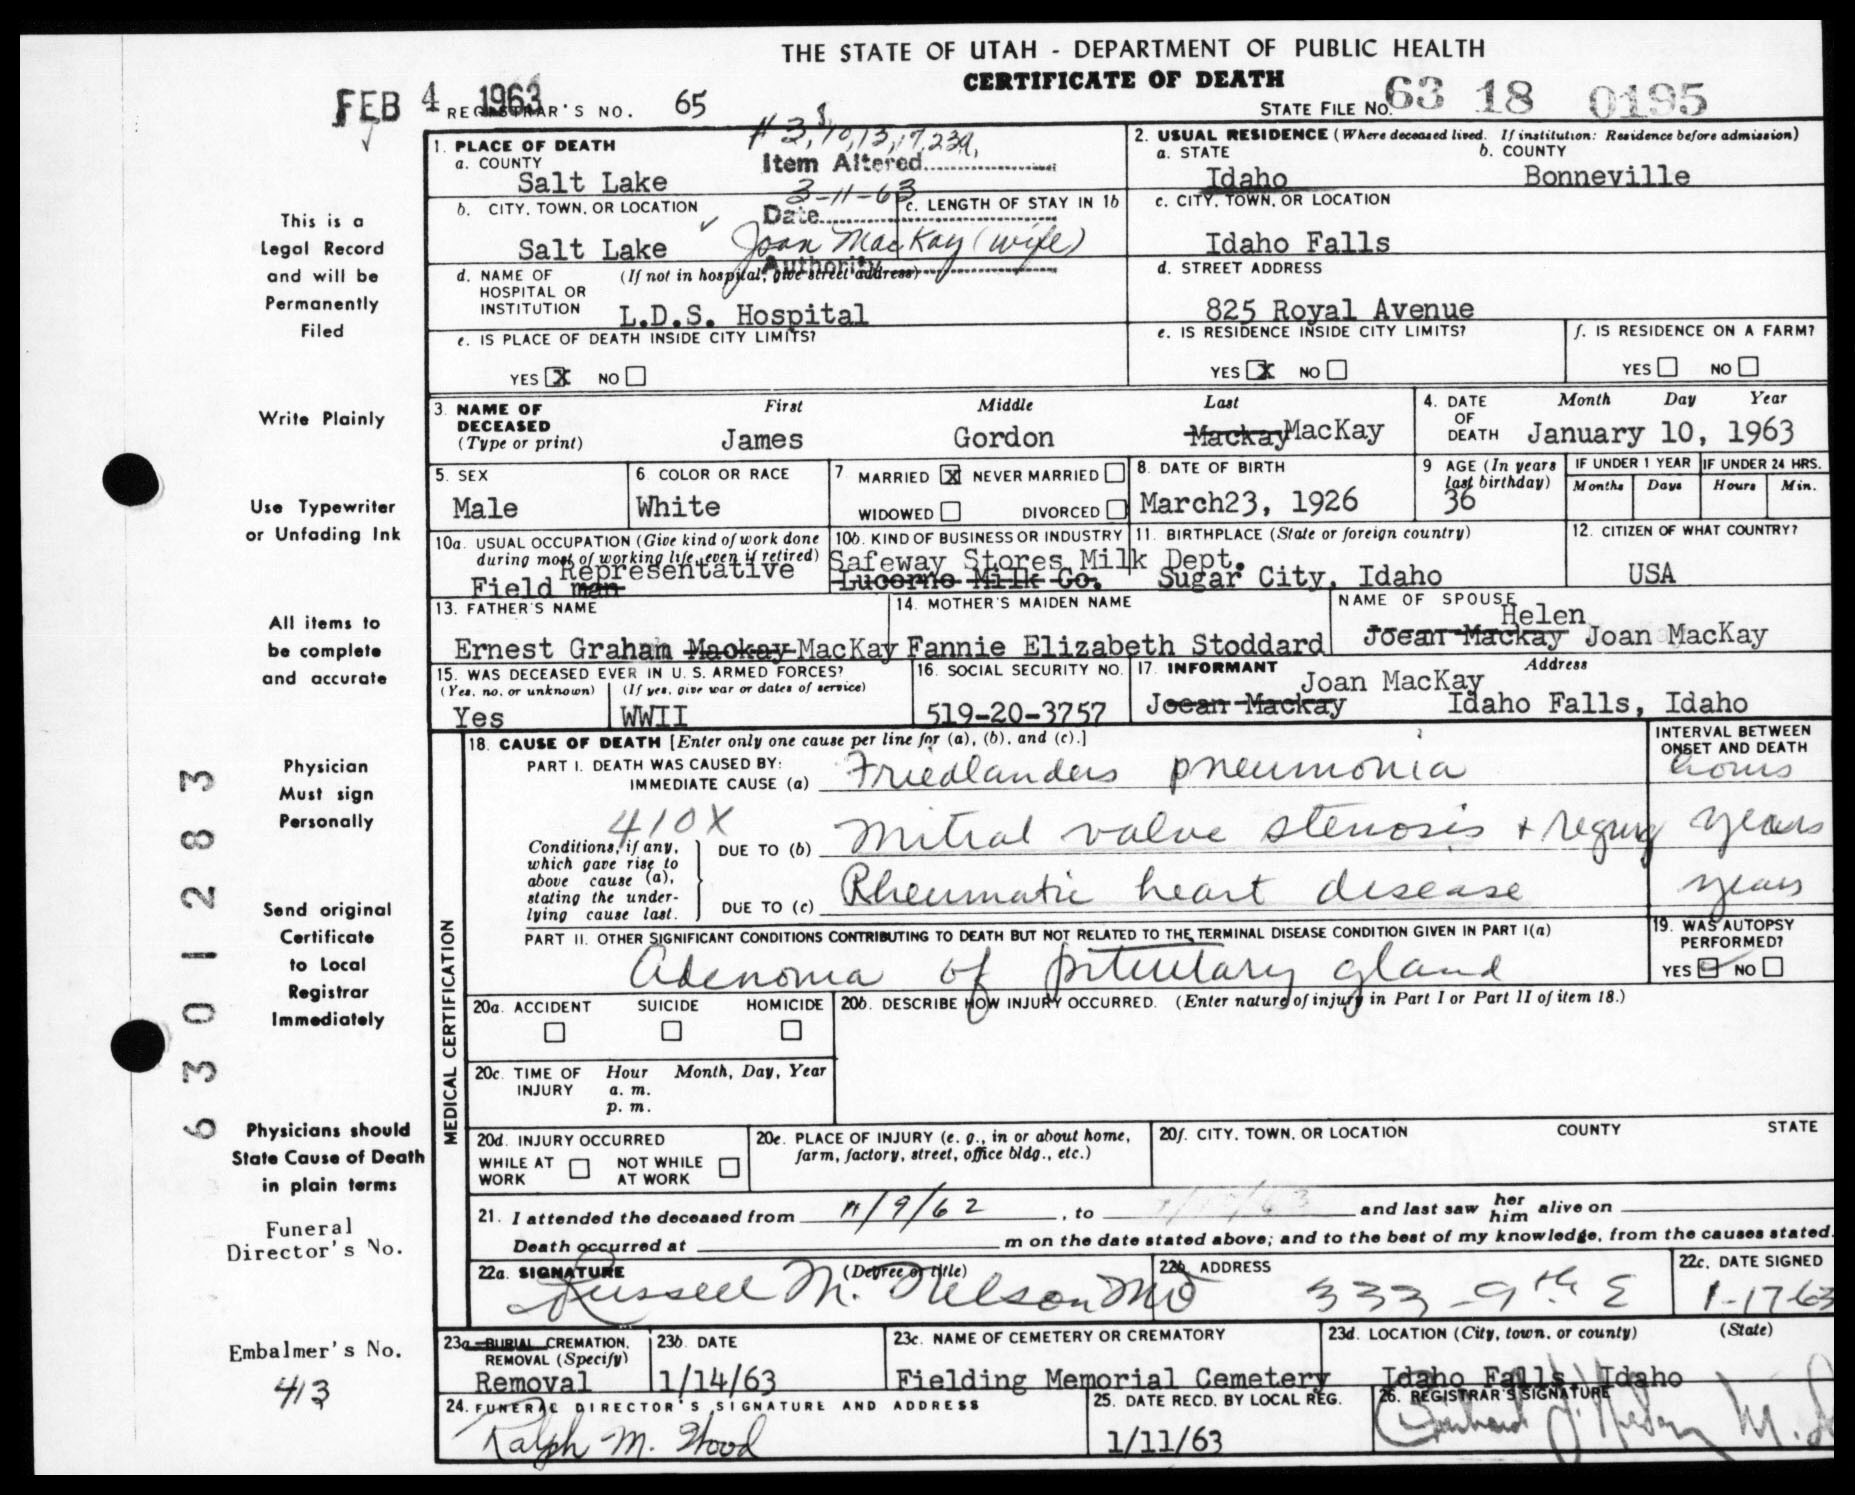 THE STATE OF UTAH - DEPARTMENT OF PUBLIC HEALTH
CERTIFICATE OF DEATH
FEB 4 1963 REGISTRAR'S NO. 65
STATE FILE NO. 63 18 0195
# 3, 10, 13, 17, 23a,
Item Altered
3-11-63
Date
Joan MacKay (wife)
Authority
1. PLACE OF DEATH
a. COUNTY
Salt Lake
b. CITY, TOWN, OR LOCATION
c. LENGTH OF STAY IN 1b
Salt Lake
d. NAME OF HOSPITAL OR INSTITUTION
(If not in hospital, give street address)
L.D.S. Hospital
e. IS PLACE OF DEATH INSIDE CITY LIMITS?
YES X NO
2. USUAL RESIDENCE (Where deceased lived. If institution: Residence before admission)
a. STATE b. COUNTY
Idaho Bonneville
c. CITY, TOWN, OR LOCATION
Idaho Falls
d. STREET ADDRESS
825 Royal Avenue
e. IS RESIDENCE INSIDE CITY LIMITS?
YES X NO
f. IS RESIDENCE ON A FARM?
YES NO
3. NAME OF DECEASED (Type or print)
First Middle Last
James Gordon Mackay MacKay
4. DATE OF DEATH
Month Day Year
January 10, 1963
5. SEX
Male
6. COLOR OR RACE
White
7 MARRIED X NEVER MARRIED
WIDOWED DIVORCED
8. DATE OF BIRTH
March23, 1926
9 AGE (In years last birthday)
36
IF UNDER 1 YEAR
Months Days
IF UNDER 24 HRS.
Hours Min.
10a. USUAL OCCUPATION (Give kind of work done during most of working life, even if retired)
Representative
Field man
10b. KIND OF BUSINESS OR INDUSTRY
Safeway Stores Milk Dept.
Lucerne Milk Co.
11. BIRTHPLACE (State or foreign country)
Sugar City, Idaho
12. CITIZEN OF WHAT COUNTRY?
USA
13. FATHER'S NAME
Ernest Graham Mackay MacKay
14. MOTHER'S MAIDEN NAME
Fannie Elizabeth Stoddard
NAME OF SPOUSE
Helen
Joean Mackay Joan MacKay
15. WAS DECEASED EVER IN U. S. ARMED FORCES?
(Yes, no, or unknown) (If yes, give war or dates of service)
Yes WWII
16. SOCIAL SECURITY NO.
519-20-3757
17. INFORMANT Address
Joan MacKay
Joean Mackay Idaho Falls, Idaho
MEDICAL CERTIFICATION
18. CAUSE OF DEATH [Enter only one cause per line for (a), (b), and (c).]
INTERVAL BETWEEN ONSET AND DEATH
PART I. DEATH WAS CAUSED BY:
IMMEDIATE CAUSE (a) Friedlanders pneumonia hours
410X
Conditions, if any, which gave rise to above cause (a), stating the underlying cause last.
DUE TO (b) Mitral valve stenosis + regurg years
DUE TO (c) Rheumatic heart disease years
PART II. OTHER SIGNIFICANT CONDITIONS CONTRIBUTING TO DEATH BUT NOT RELATED TO THE TERMINAL DISEASE CONDITION GIVEN IN PART I(a)
Adenoma of pituitary gland
19. WAS AUTOPSY PERFORMED?
YES NO
20a. ACCIDENT SUICIDE HOMICIDE
20b. DESCRIBE HOW INJURY OCCURRED. (Enter nature of injury in Part I or Part II of item 18.)
20c. TIME OF INJURY
Hour Month, Day, Year
a. m.
p. m.
20d. INJURY OCCURRED
WHILE AT WORK NOT WHILE AT WORK
20e. PLACE OF INJURY (e. g., in or about home, farm, factory, street, office bldg., etc.)
20f. CITY, TOWN, OR LOCATION COUNTY STATE
21. I attended the deceased from 11/9/62, to and last saw her him alive on
Death occurred at m on the date stated above; and to the best of my knowledge, from the causes stated.
22a. SIGNATURE (Degree or title)
Russell M. Nelson MD
22b. ADDRESS
333 - 9th E
22c. DATE SIGNED
1-17-63
23a. BURIAL CREMATION, REMOVAL (Specify)
Removal
23b. DATE
1/14/63
23c. NAME OF CEMETERY OR CREMATORY
Fielding Memorial Cemetery
23d. LOCATION (City, town, or county) (State)
Idaho Falls, Idaho
24. FUNERAL DIRECTOR'S SIGNATURE AND ADDRESS
Ralph M. Wood
25. DATE RECD. BY LOCAL REG.
1/11/63
26. REGISTRAR'S SIGNATURE
This is a
Legal Record
and will be
Permanently
Filed
Write Plainly
Use Typewriter
or Unfading Ink
All items to
be complete
and accurate
Physician
Must sign
Personally
Send original
Certificate
to Local
Registrar
Immediately
Physicians should
State Cause of Death
in plain terms
Funeral
Director's No.
Embalmer's No.
413
6301283